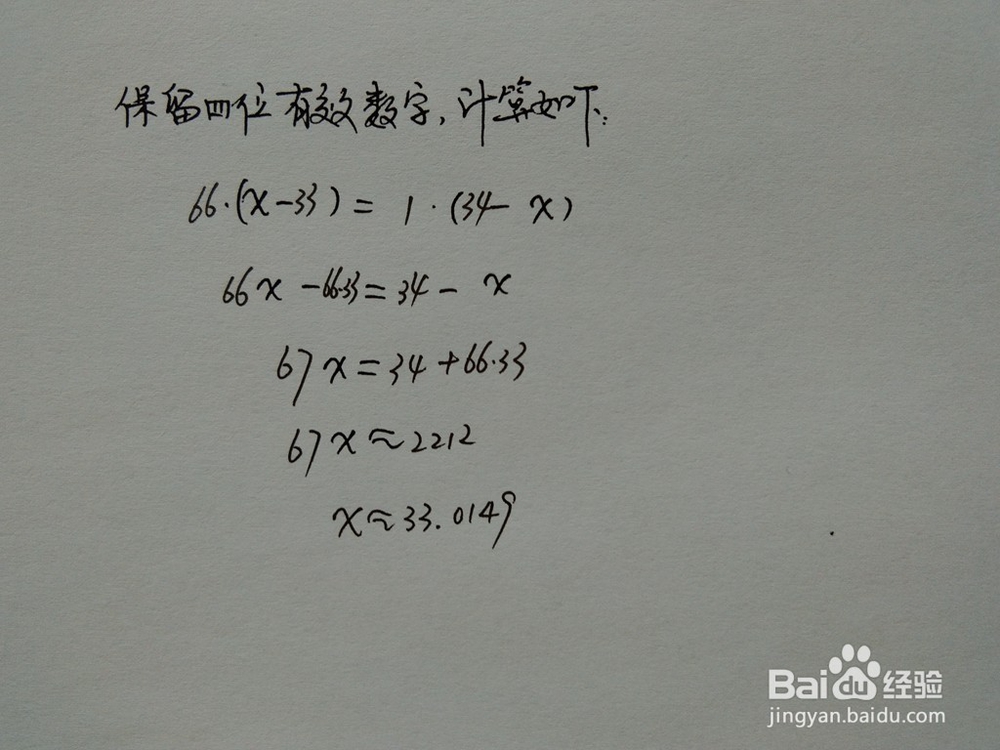 保留四位有效数字,计算如下:
66·(x-33)=1·(34-x)
66x-66·33=34-x
67x=34+66·33
67x≈2212
x≈33.0149
Baidu经验
jingyan.baidu.com